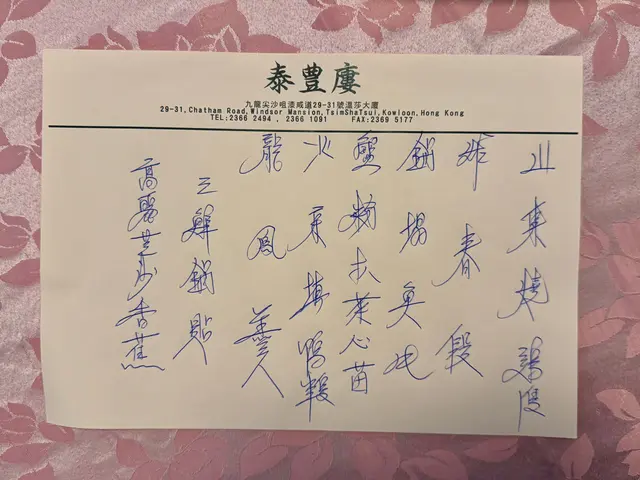 泰豐廔
九龍尖沙咀漆咸道29-31號溫莎大廈
29-31,Chatham Road,Windsor Mansion,TsimShaTsui,Kowloon,Hong Kong
TEL:2366 2494 , 2366 1091 FAX:2369 5177
山東燒
炸春段
鍋塌魚
蟹粉扒菜心苗
北京填鴨
龍鳳
三鮮鍋貼
高麗豆沙香蕉